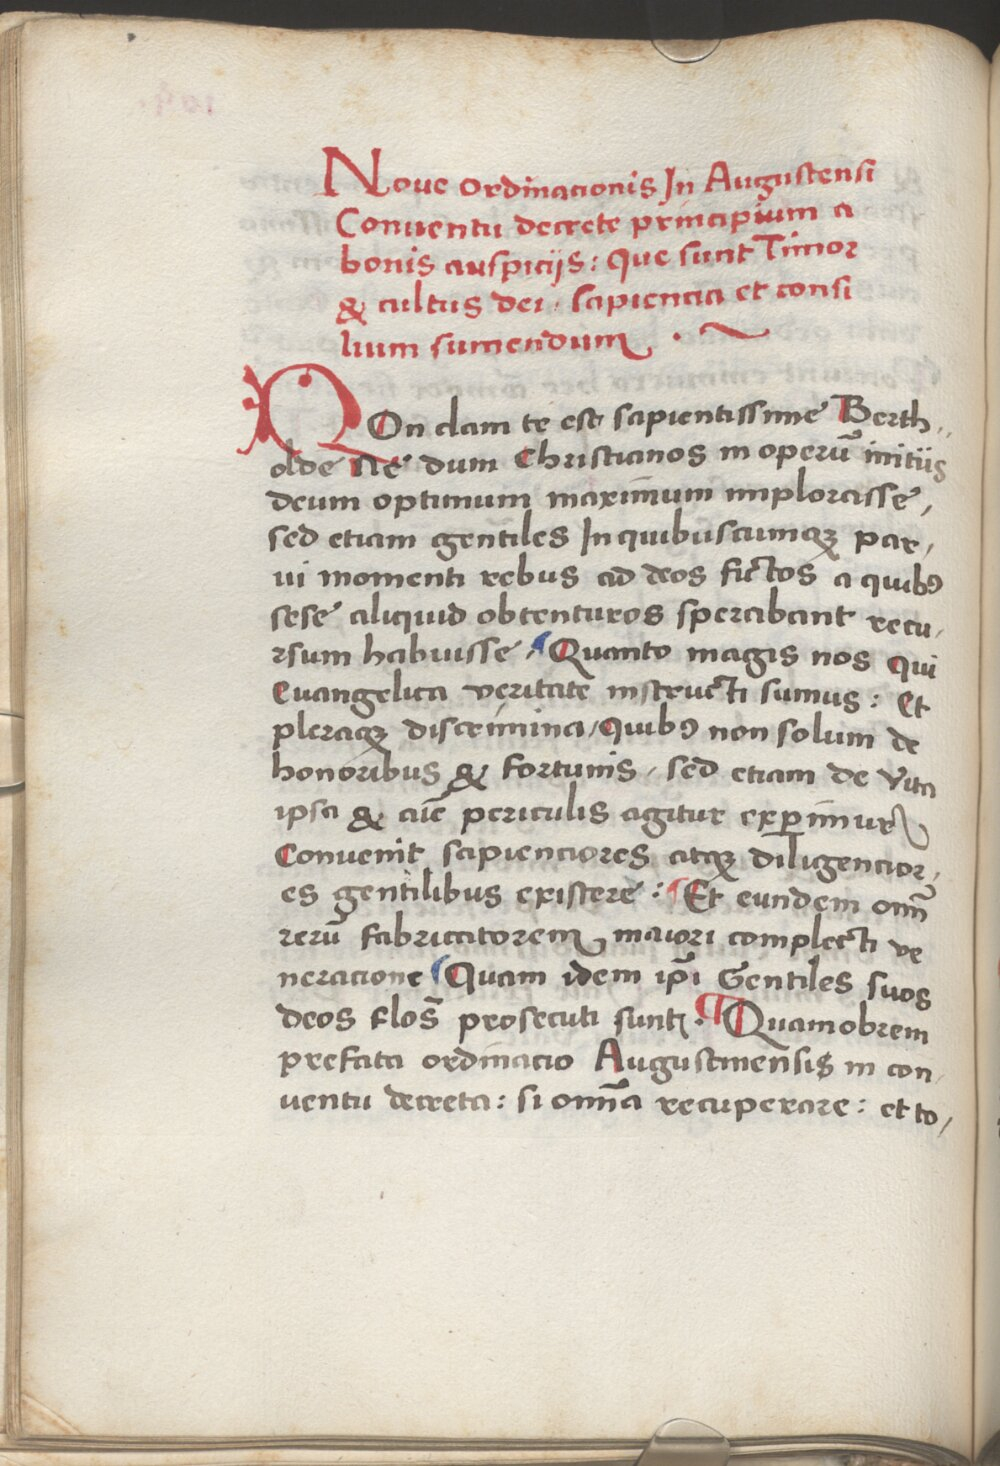 Noue ordinacionis In Augustensi
Conuentu decrete principium a
bonis auspicijs: Que sunt Timor
& cultus dei. sapiencia et consi
lium sumendum.
NOn clam te est sapientissime Berth
olde Ne dum Christianos in operū initijs
deum optimum maximum implorasse,
sed etiam gentiles In quibuscumqꝫ par,
ui momenti rebus ad deos fictos a quibꝰ
sese aliquid obtenturos sperabant recu,
rsum habuisse, Quanto magis nos qui
Euangelica veritate instructi sumus: Et
pleraqꝫ discrimina, quibꝰ non solum de
honoribus & fortunis, sed etiam de vita
ipsa & aīe periculis agitur exꝑimur
Convenit sapienciores atqꝫ diligencior,
es gentilibus existere: Et eundem omn̄
rerū fabricatorem maiori complecti ve
neracione Quam idem ip̄i Gentiles suos
deos flos̄ prosecuti sunt. Quamobrem
prefata ordinacio Augustinensis in con,
uentu decreta: si omn̄a recuperare: et to,